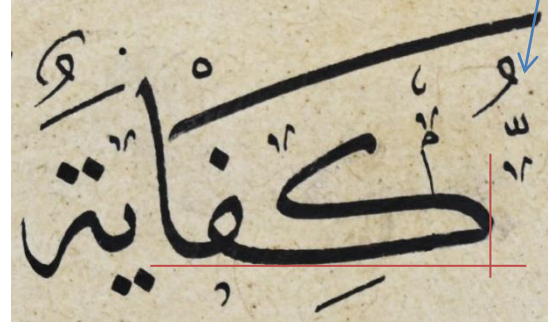 كِفَايَةٌ